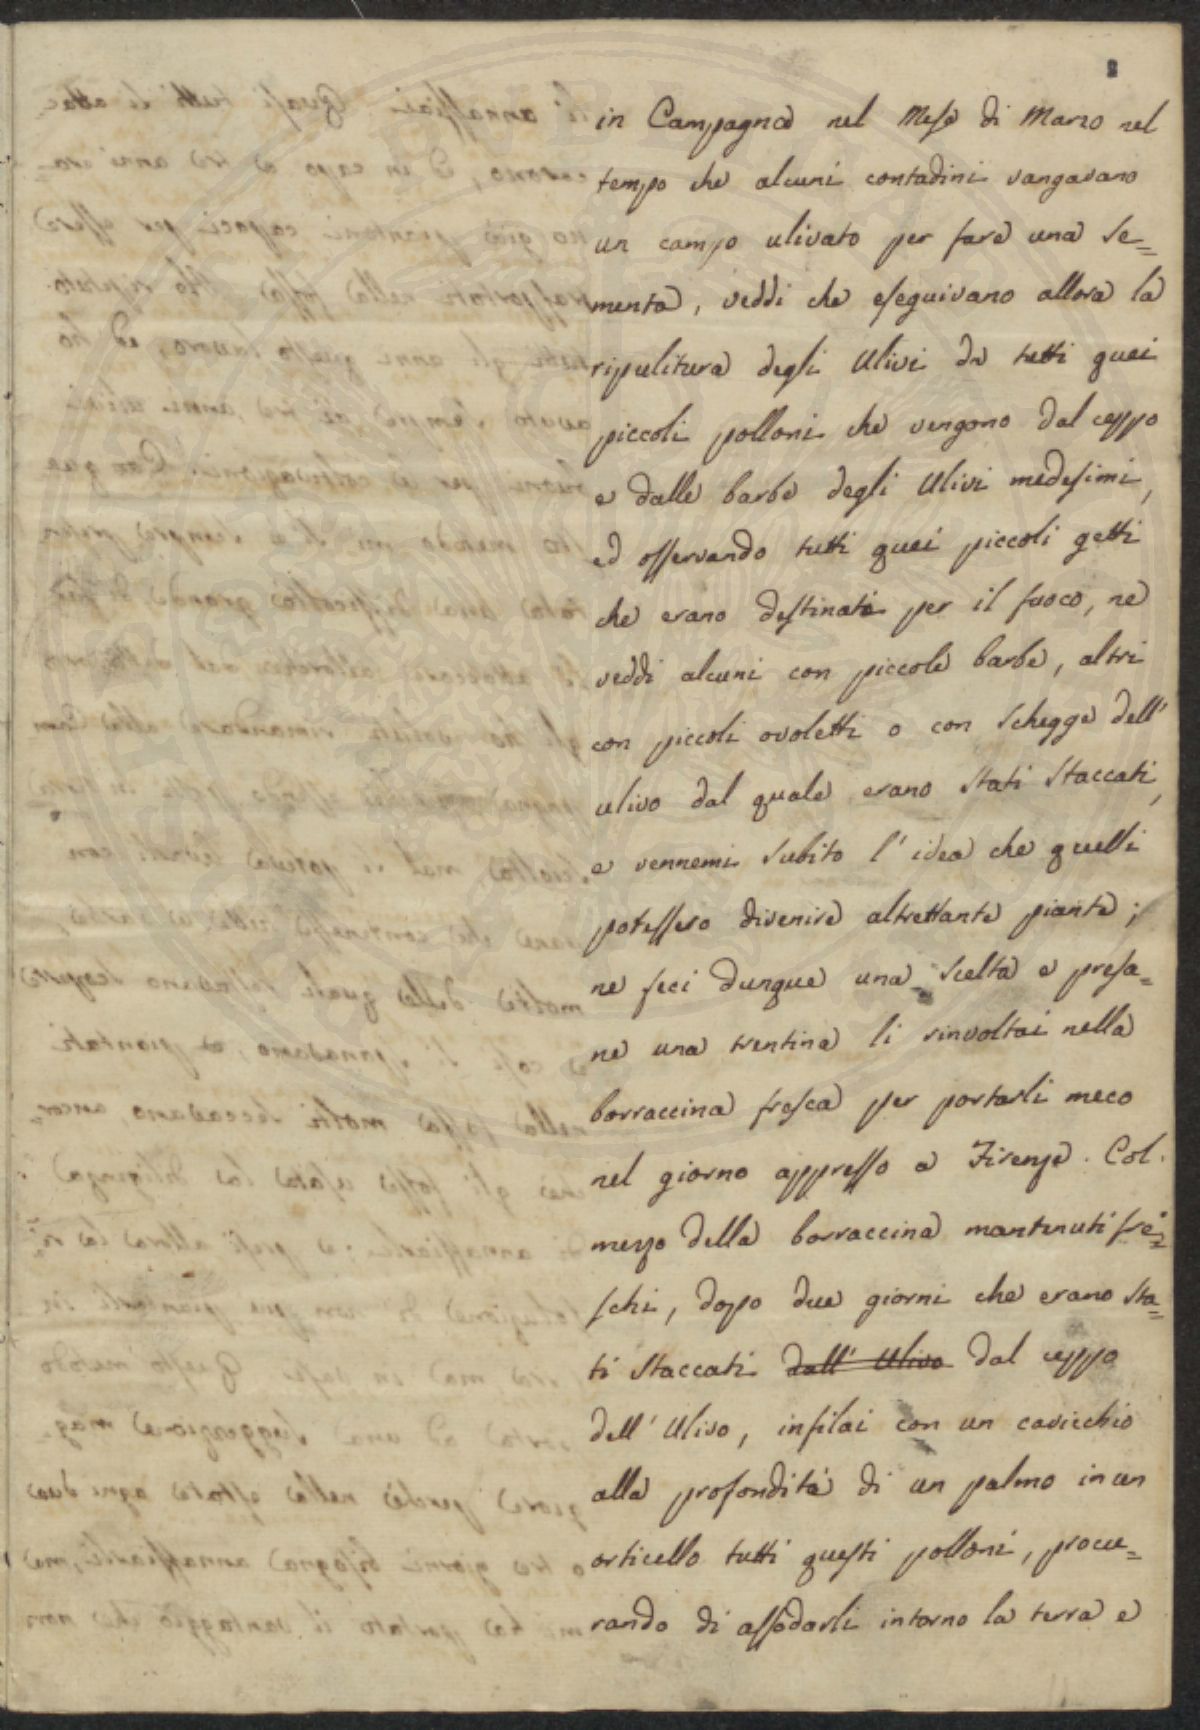 in Campagna nel Mese di Marzo nel
tempo che alcuni contadini vangavano
un campo ulivato per fare una se=
menta, veddi che eseguivano allora la
ripulitura degli Ulivi da tutti quei
piccoli polloni che vengono dal ceppo
e dalle barbe degli Ulivi medesimi,
ed osservando tutti quei piccoli getti
che erano destinati per il fuoco, ne
veddi alcuni con piccole barbe, altri
con piccoli ovoletti o con schegge dell'
ulivo dal quale erano stati staccati,
e vennemi subito l'idea che quelli
potessero divenire altrettante piante;
ne feci dunque una scelta e prese=
ne una trentina li rinvoltai nella
borraccina fresca per portarli meco
nel giorno appresso a Firenze. Col
mezzo della borraccina mantenuti fre=
schi, dopo due giorni che erano sta=
ti staccati dall' Ulivo dal ceppo
dell'Ulivo, infilai con un cavicchio
alla profondità di un palmo in un
orticello tutti questi polloni, procu=
rando di assodarli intorno la terra e